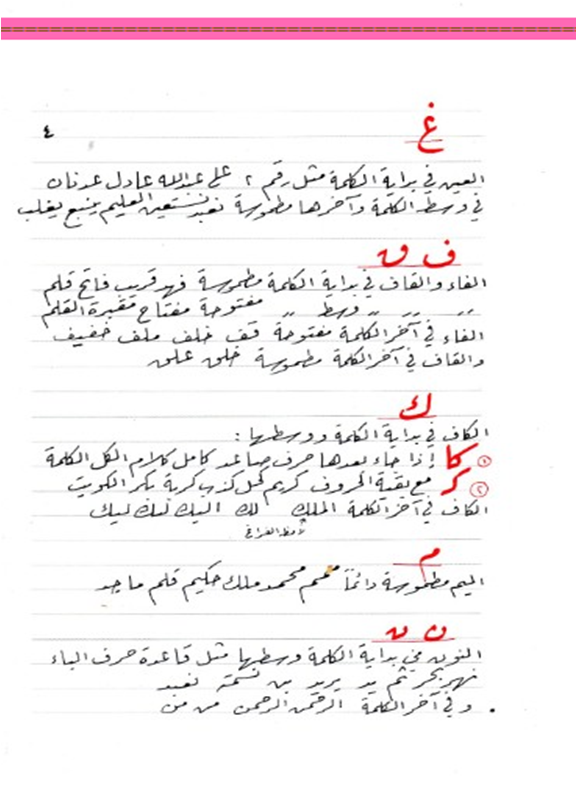 غ
٤
العين في بداية الكلمة مثل رقم ٢ على عبدالله عادل عدنان
في وسط الكلمة وآخرها مطموسة نعبد نستعين العليم ينبع يغلب
ف ق
الفاء والقاف في بداية الكلمة مطموسة فهد قريب فاتح قلم
〃 〃 〃 وسط 〃 مفتوحة مفتاح مقبرة القلم
الفاء في آخر الكلمة مفتوحة قف خلف ملف خفيف
والقاف في آخر الكلمة مطموسة خلق علق
ك
الكاف في بداية الكلمة ووسطها :
١ كا إذا جاء بعدها حرف صاعد كامل كلام الكل الكلمة
٢ كر مع بقية الحروف كريم كحل كذب كرة بكر الكويت
الكاف في آخر الكلمة الملك لك اليك
م
الميم مطموسة دائماً محمد ملك حكيم قلم ماجد
ن ن
النون في بداية الكلمة وسطها مثل قاعدة حرف الباء
نهر بحر ثم يد يريد بن نعبد
وفي آخر الكلمة الرحمن الرحمن من من